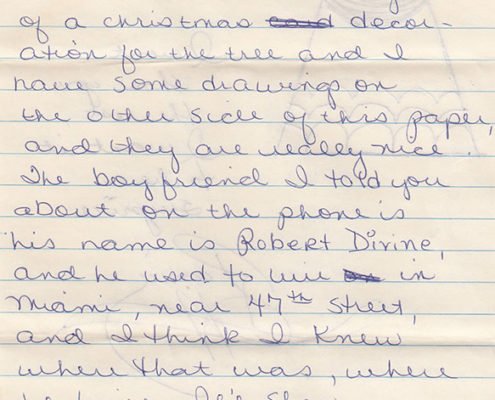 of a christmas card decor-
ation for the tree and I
have some drawings on
the other side of this paper,
and they are really nice.
The boyfriend I told you
about on the phone is
his name is Robert Divine,
and he used to live in
Miami, near 47th street,
and I think I knew
where that was, where